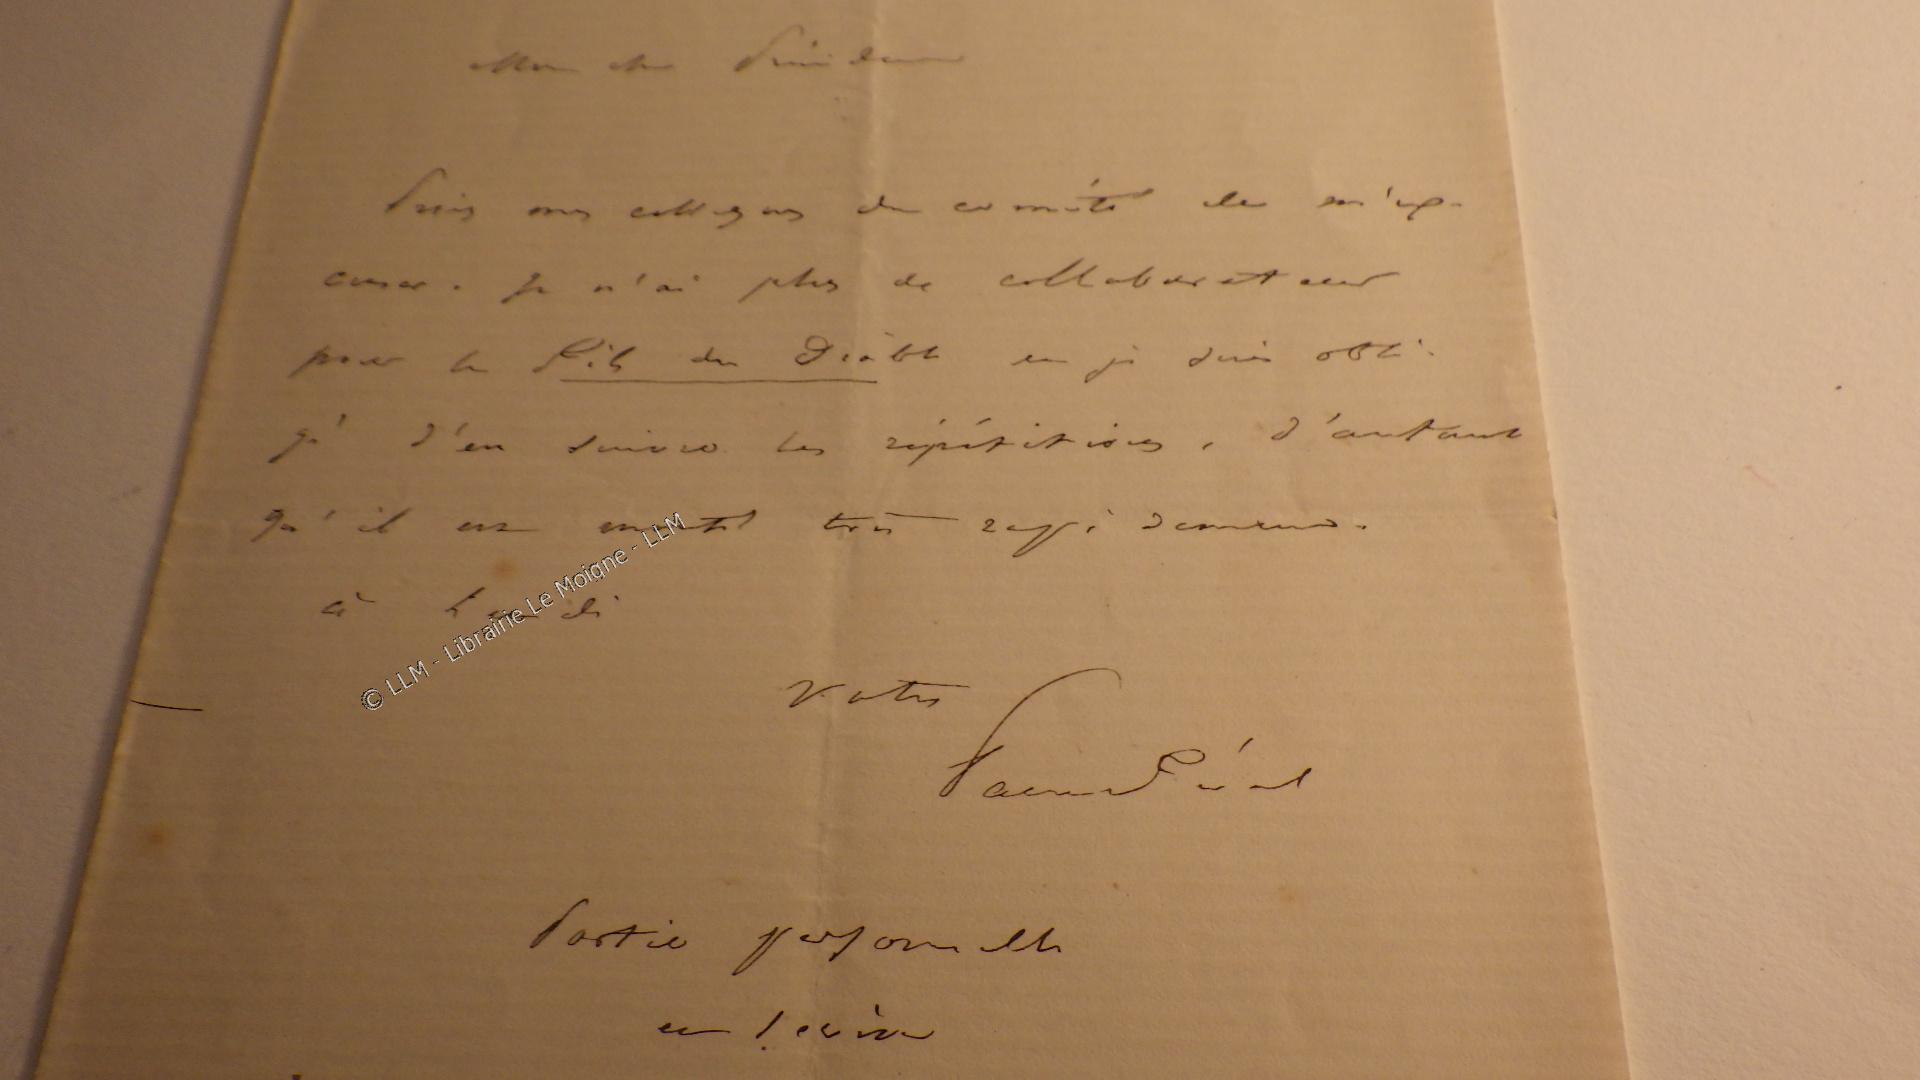 Mon cher Président
Priez mes collègues du comité de m'ex-
cuser. Je n'ai plus de collaborateur
pour le Fils du Diable et je suis obli-
gé d'en suivre les répétitions, d'autant
qu'il est monté très rapidement.
à Lundi
Votre
Paul Féval
Partie personnelle
et
© LLM - Librairie Le Moigne - LLM